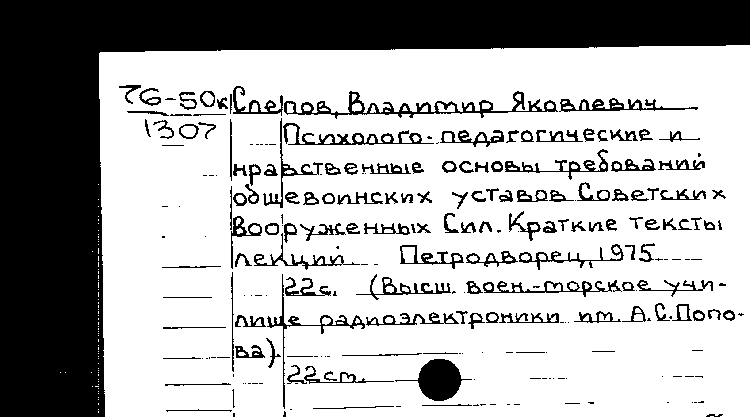 76-50к Слепов, Владимир Яковлевич.
1307 Психолого-педагогические и
нравственные основы требований
общевоинских уставов Советских
Вооруженных Сил. Краткие тексты
лекций. Петродворец, 1975
22с. (Высш. воен.-морское учи-
лище радиоэлектроники им. А.С.Попо-
ва).
22см.